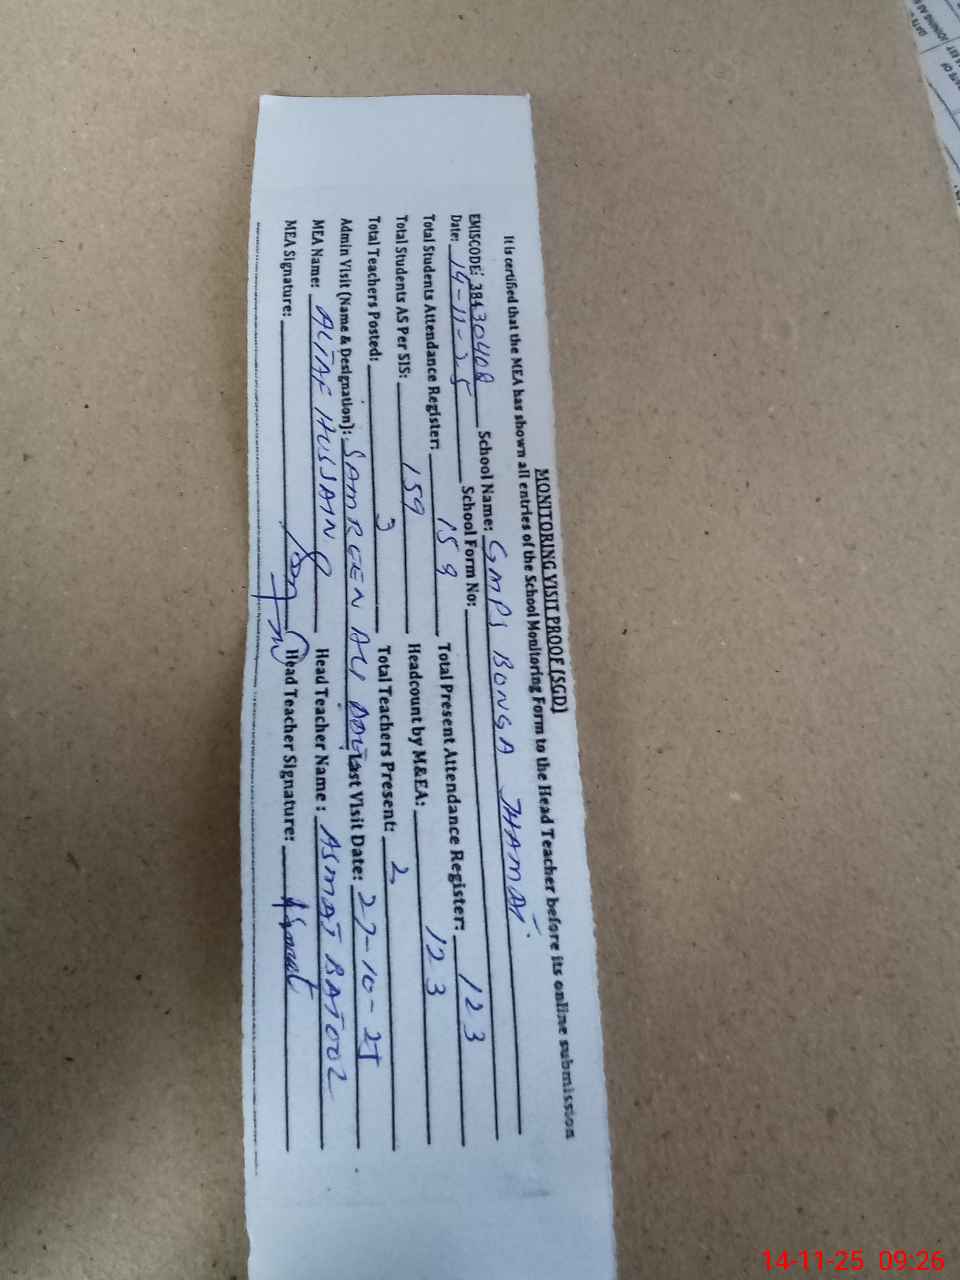 MONITORING VISIT PROOF (SGD)
It is certified that the MEA has shown all entries of the School Monitoring Form to the Head Teacher before its online submission
EMISCODE: 38430408 School Name: GMPS BONGA JHAMAT
Date: 14-11-25 School Form No:
Total Students Attendance Register: 159 Total Present Attendance Register: 123
Total Students AS Per SIS: 159 Headcount by M&EA: 123
Total Teachers Posted: 3 Total Teachers Present: 2
Admin Visit (Name & Designation): SAMREEN ALI Last Visit Date: 27-10-25
MEA Name: ALTAF HUSSAIN Head Teacher Name: ASMAT BATOOL
MEA Signature: Head Teacher Signature: Asmat
14-11-25 09:26